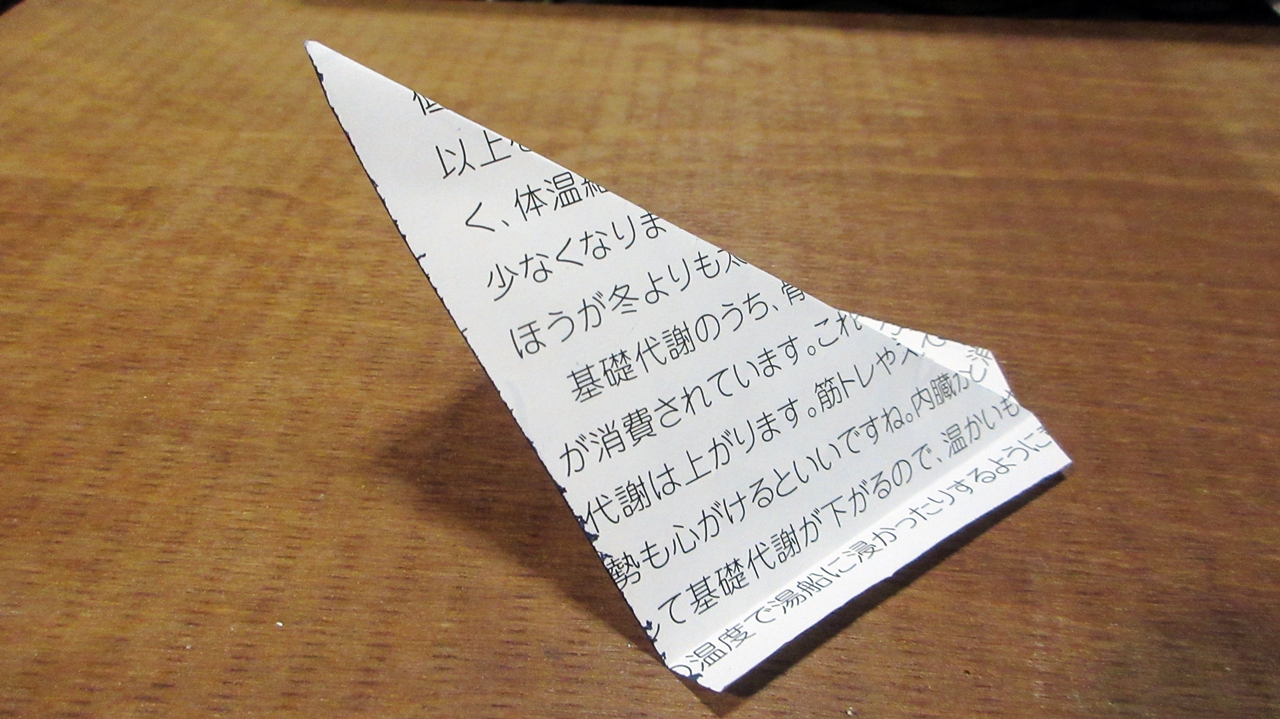 以上
く、体温
少なくなりま
ほうが冬よりも太
基礎代謝のうち、骨
が消費されています。これ
代謝は上がります。筋トレや
勢も心がけるといいですね。内臓が
て基礎代謝が下がるので、温かいも
温度で湯船に浸かったりするように